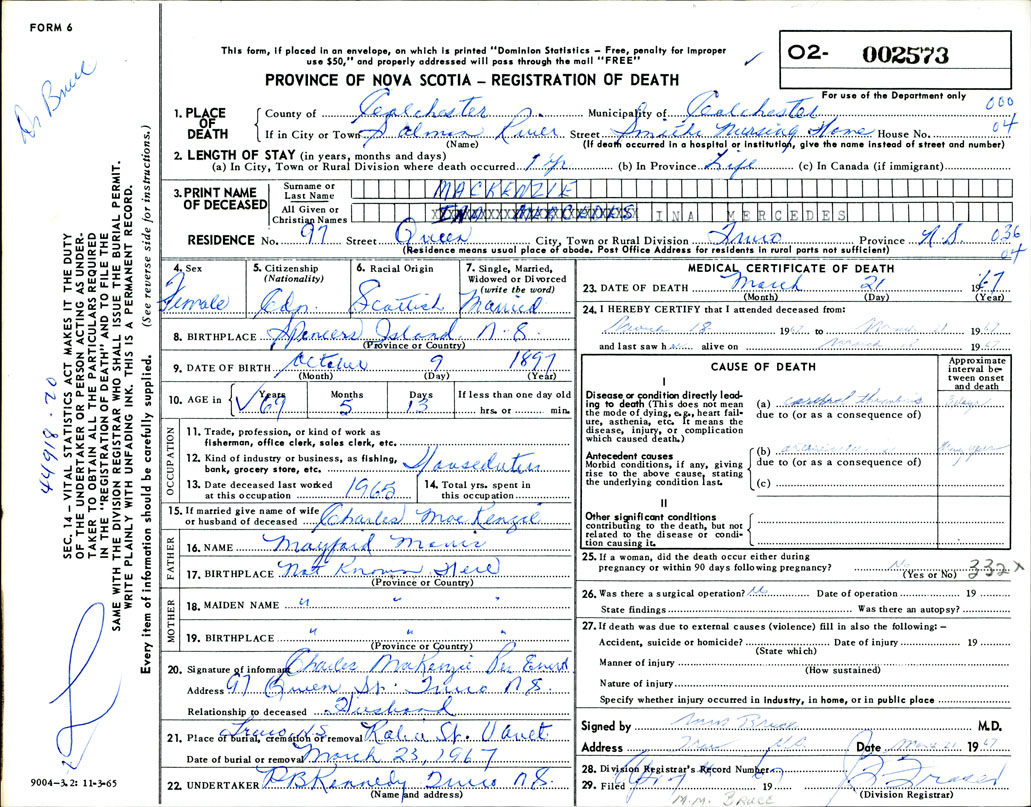 FORM 6
Dr Bruce
This form, if placed in an envelope, on which is printed "Dominion Statistics – Free, penalty for improper
use $50," and properly addressed will pass through the mail "FREE"
PROVINCE OF NOVA SCOTIA – REGISTRATION OF DEATH
O2- 002573
For use of the Department only
000
04
1. PLACE OF DEATH
County of Colchester Municipality of Colchester
If in City or Town Salmon River Street Smiths Nursing Home House No.
(Name) (If death occurred in a hospital or institution, give the name instead of street and number)
2. LENGTH OF STAY (in years, months and days)
(a) In City, Town or Rural Division where death occurred 1 yr (b) In Province Life (c) In Canada (if immigrant)
3. PRINT NAME OF DECEASED
Surname or Last Name MACKENZIE
All Given or Christian Names INA MERCEDES
RESIDENCE No. 97 Street Queen City, Town or Rural Division Truro Province N.S. 036
04
(Residence means usual place of abode. Post Office Address for residents in rural parts not sufficient)
4. Sex Female
5. Citizenship (Nationality) Cdn.
6. Racial Origin Scottish
7. Single, Married, Widowed or Divorced (write the word) Married
8. BIRTHPLACE Spencers Island N.S.
(Province or Country)
9. DATE OF BIRTH October 9 1897
(Month) (Day) (Year)
10. AGE in Years 69 Months 5 Days 13 If less than one day old
hrs. or min.
OCCUPATION
11. Trade, profession or kind of work as
fisherman, office clerk, sales clerk, etc.
12. Kind of industry or business, as fishing,
bank, grocery store, etc. Houseduties
13. Date deceased last worked
at this occupation 1965
14. Total yrs. spent in
this occupation
15. If married give name of wife
or husband of deceased Charles MacKenzie
FATHER
16. NAME
17. BIRTHPLACE Not Known Here
(Province or Country)
MOTHER
18. MAIDEN NAME " " "
19. BIRTHPLACE " " "
(Province or Country)
20. Signature of informant Charles MacKenzie Per
Address 97 Queen St. Truro N.S.
Relationship to deceased Husband
21. Place of burial, cremation or removal Truro NS
Date of burial or removal March 23, 1967
22. UNDERTAKER P B Kennedy Truro N.S.
(Name and address)
MEDICAL CERTIFICATE OF DEATH
23. DATE OF DEATH March 21 1967
(Month) (Day) (Year)
24. I HEREBY CERTIFY that I attended deceased from:
March 18 1967 to March 21 1967
and last saw h alive on March 1967
CAUSE OF DEATH
Approximate interval between onset and death
I
Disease or condition directly leading to death (This does not mean the mode of dying, e.g., heart failure, asthenia, etc. It means the disease, injury, or complication which caused death.)
(a) cerebral thrombosis 3 days
due to (or as a consequence of)
Antecedent causes
Morbid conditions, if any, giving rise to the above cause, stating the underlying condition last.
(b)
due to (or as a consequence of)
(c)
II
Other significant conditions contributing to the death, but not related to the disease or condition causing it.
25. If a woman, did the death occur either during
pregnancy or within 90 days following pregnancy? No
(Yes or No) 332 X
26. Was there a surgical operation? No Date of operation 19
State findings Was there an autopsy?
27. If death was due to external causes (violence) fill in also the following: –
Accident, suicide or homicide? Date of injury 19
(State which)
Manner of injury
(How sustained)
Nature of injury
Specify whether injury occurred in industry, in home, or in public place
Signed by Bruce M.D.
Address Truro N.S. Date March 21 1967
28. Division Registrar's Record Number
29. Filed 19
(Division Registrar)
M.M. BRUCE
44918-20
SEC. 14 – VITAL STATISTICS ACT MAKES IT THE DUTY
OF THE UNDERTAKER OR PERSON ACTING AS UNDER-
TAKER TO OBTAIN ALL THE PARTICULARS REQUIRED
IN THE "REGISTRATION OF DEATH" AND TO FILE THE
SAME WITH THE DIVISION REGISTRAR WHO SHALL ISSUE THE BURIAL PERMIT.
WRITE PLAINLY WITH UNFADING INK. THIS IS A PERMANENT RECORD.
Every item of information should be carefully supplied. (See reverse side for instructions.)
9004–3.2: 11-3-65